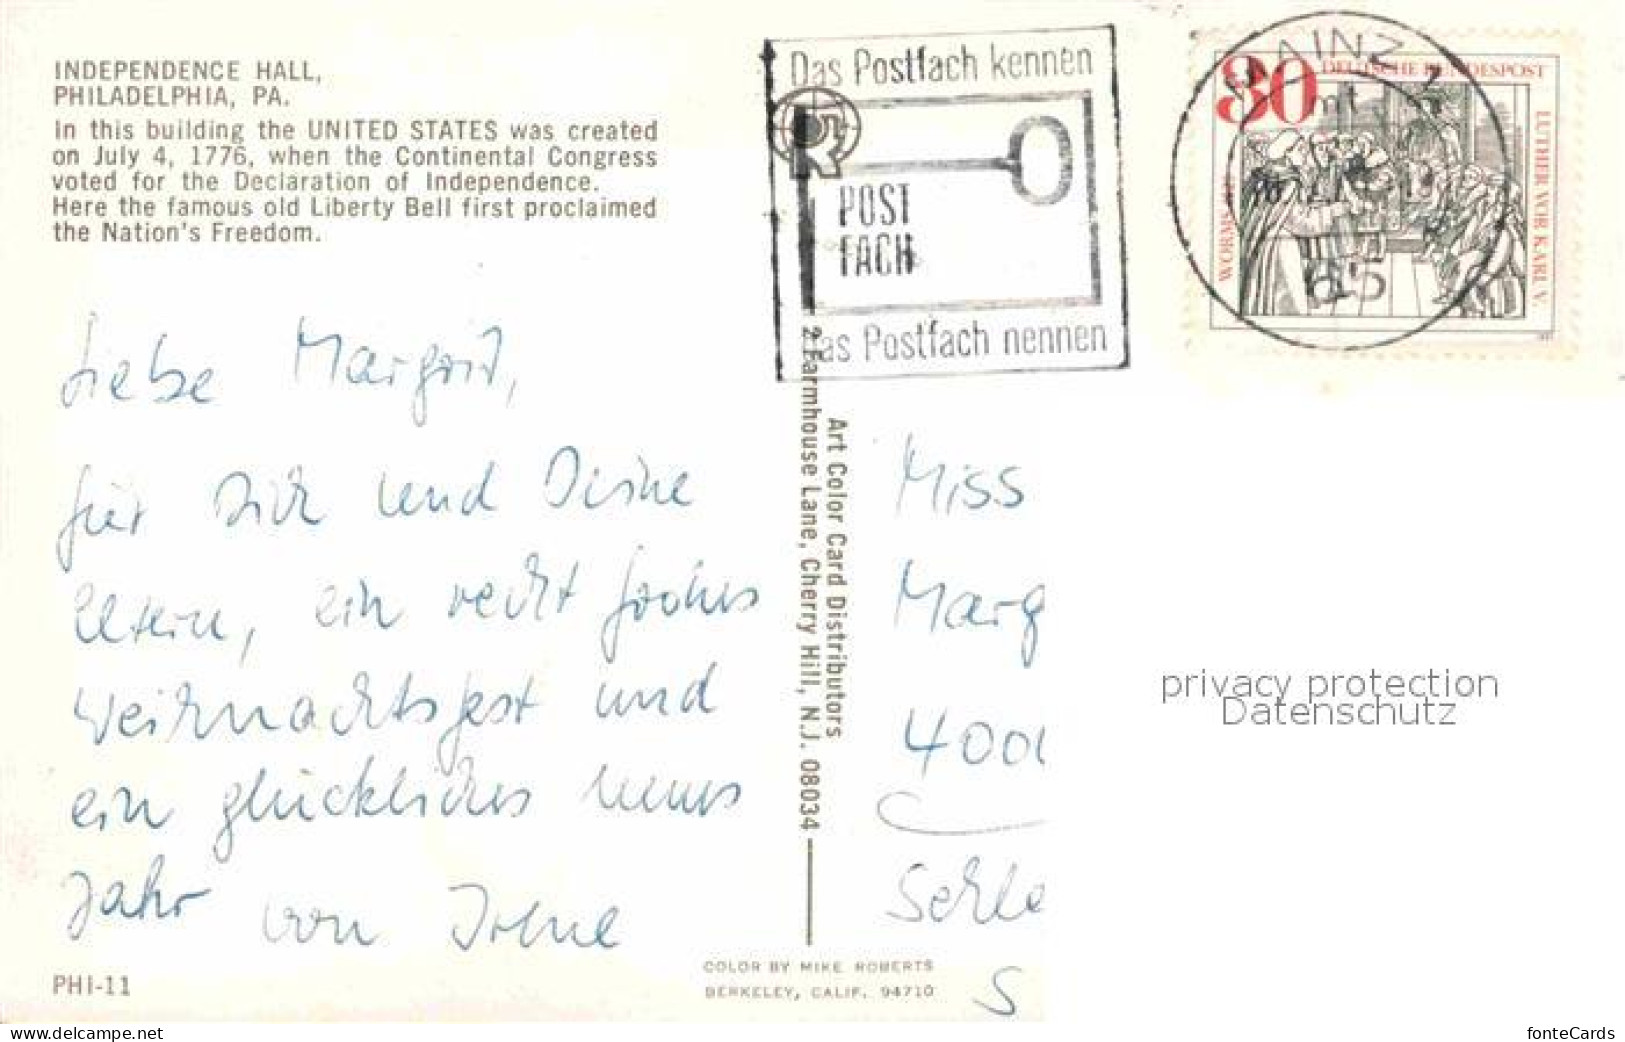 INDEPENDENCE HALL,
PHILADELPHIA, PA.
In this building the UNITED STATES was created
on July 4, 1776, when the Continental Congress
voted for the Declaration of Independence.
Here the famous old Liberty Bell first proclaimed
the Nation's Freedom.
Liebe Margrid,
für Dich und Deine
Eltern, ein recht frohes
Weihnachtsfest und
ein glückliches neues
Jahr von Irene
PHI-11
Das Postfach kennen
POST
FACH
das Postfach nennen
MAINZ 1
65
30 DEUTSCHE BUNDESPOST
WORMS
LUTHER VOR KARL V.
Art Color Card Distributors
2 Farmhouse Lane, Cherry Hill, N.J. 08034
COLOR BY MIKE ROBERTS
BERKELEY, CALIF. 94710
Miss
Marg
400
Schle
S
privacy protection
Datenschutz
www.delcampe.net
fonteCards